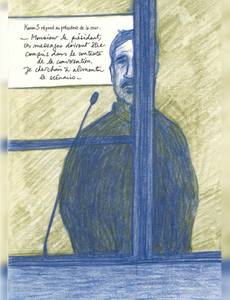 Karim S répond au président de la cour.
— Monsieur le président,
ces messages doivent être
compris dans le contexte
de la conversation.
Je cherchais à alimenter
le scénario...